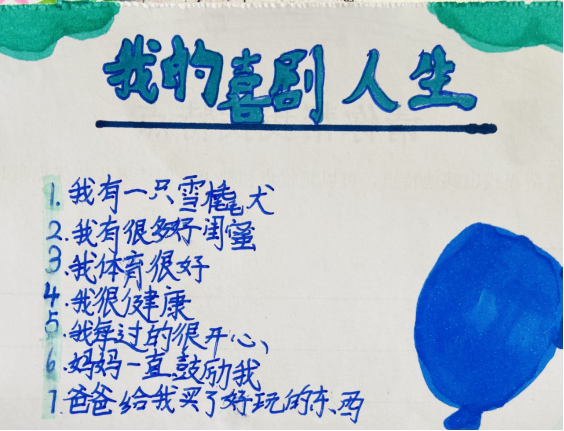 我的喜剧人生
1. 我有一只雪橇犬
2. 我有很多好闺蜜
3. 我体育很好
4. 我很健康
5. 我每过的很开心、
6. 妈妈一直鼓励我
7. 爸爸给我买了好玩的东西